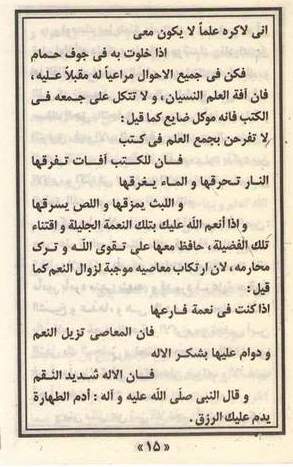 انی لاکره علماً لا یکون معی
اذا خلوت به فی جوف حمام
فکن فی جمیع الاحوال مراعیاً له مقبلاً علیه ،
فان آفة العلم النسیان ، و لا تتکل علی جمعه فی
الکتب فانه موکل ضایع کما قیل :
لا تفرحن بجمع العلم فی کتب
فـان للکتب آفـات تـفرقها
النار تـحرقها و المـاء یـغرقها
و اللبث یمزقها و اللص یسرقها
و اذا أنعم اللّه علیك بتلك النعمة الجلیلة و اقتناء
تلك الفضیلة ، حافظ معها علی تـقوی اللّـه و تـرک
محارمه ، لان ارتکاب معاصیه موجبة لزوال النعم کما
قیل :
اذا کنت فی نعمة فارعها
فان المعاصی تزیل النعم
و دوام علیها بشکـر الاله
فـــان الاله شـدید النـقم
و قال النبی صلّی اللّه علیه و آله : أدم الطهارة
یدم علیك الرزق .
« ١۵ »